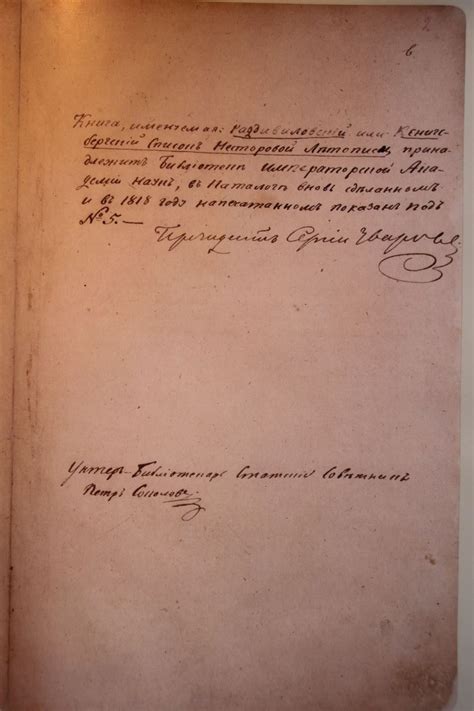 2
в
Книга, имянуемая: Радзивиловский или Кенигс-
бергский Списокъ Несторовой Лѣтописи, прина-
длежитъ Библіотекѣ Императорской Ака-
деміи Наукъ, въ Каталогѣ вновь сдѣланномъ
и въ 1818 году напечатанномъ показанъ подъ
№ 5.—
Президентъ Сергій Уваровъ
Унтеръ-Библіотекарь Статскій Совѣтникъ
Петръ Соколовъ.